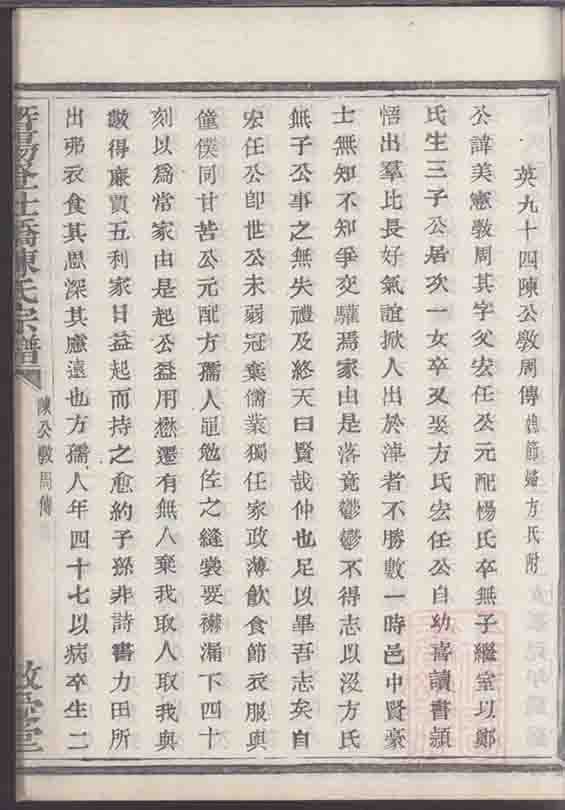 英九十四陳公斆周傳 媳節婦方氏附
公諱美憲斆周其字父宏任公元配楊氏卒無子繼室以鄭
氏生三子公居次一女卒又娶方氏宏任公自幼喜讀書穎
悟出羣比長好氣誼掀人出於淖者不勝數一時邑中賢豪
士無知不知爭交驩焉家由是落竟鬱鬱不得志以沒方氏
無子公事之無失禮及終天曰賢哉仲也足以畢吾志矣自
宏任公卽世公未弱冠棄儒業獨任家政薄飮食節衣服與
僮僕同甘苦公元配方孺人黽勉佐之縫裳要襋漏下四十
刻以爲常家由是起公益用懋遷有無人棄我取人取我與
斆得廉賈五利家日益起而持之愈約子孫非詩書力田所
出弗衣食其思深其慮遠也方孺人年四十七以病卒生二
暨陽登仕橋陳氏宗譜
陳公斆周傳
敦睦堂